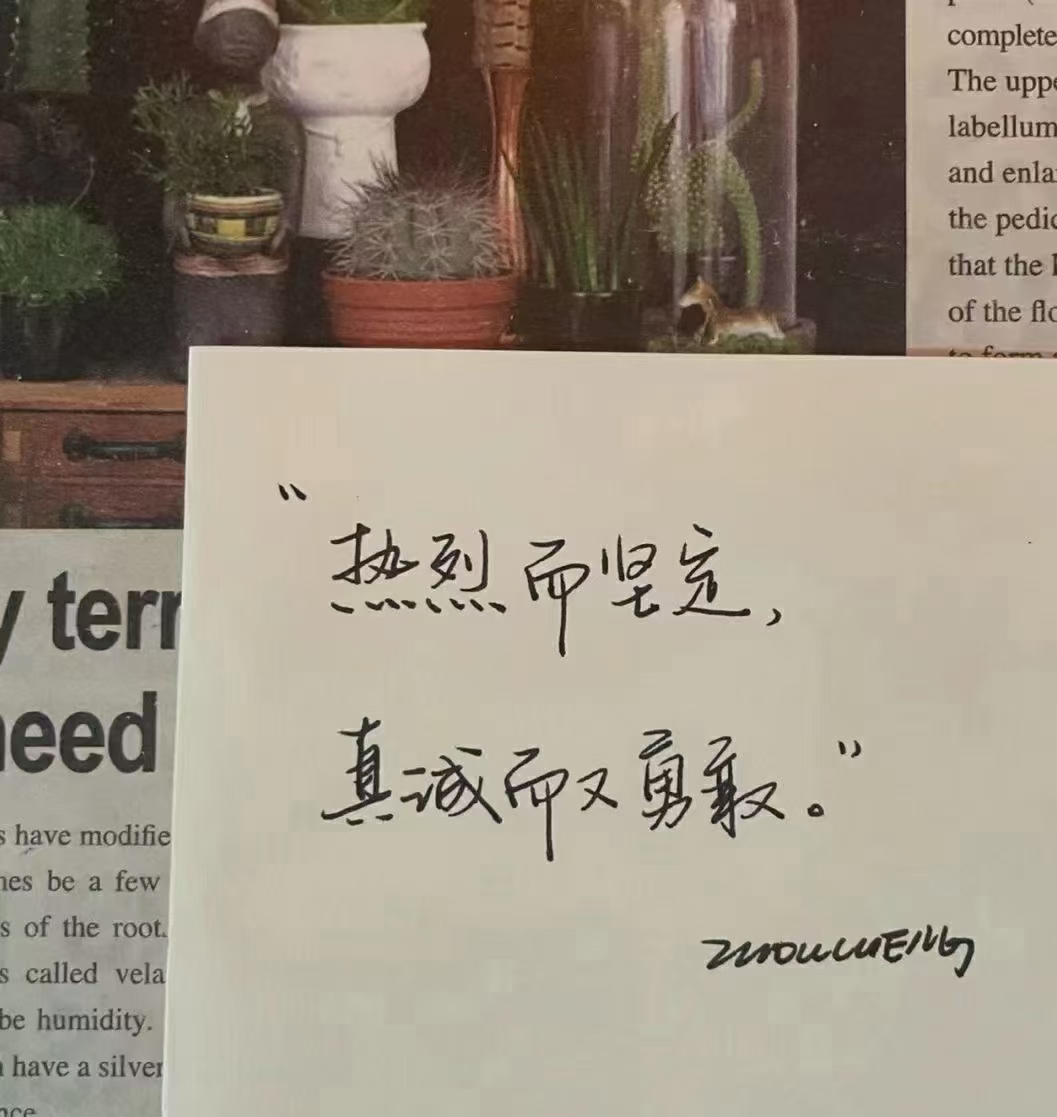 complete
The uppe
labellum
and enla
the pedic
that the
of the flo
to form
"热烈而坚定,
真诚而又勇敢。"
y terr
need
s have modifie
nes be a few
s of the root.
s called vela
be humidity.
n have a silver
nce